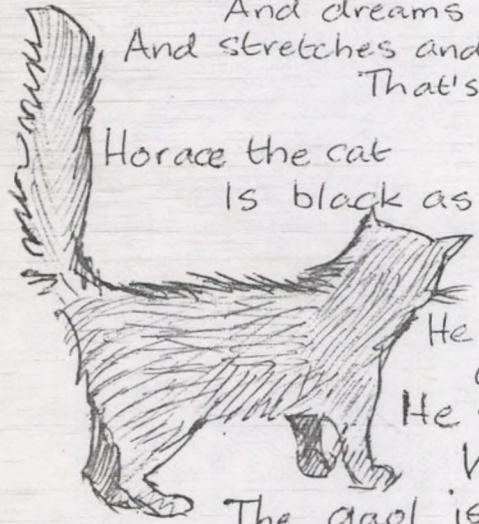 And dreams
And stretches and
That's
Horace the cat
Is black as
He
He
The gaol is